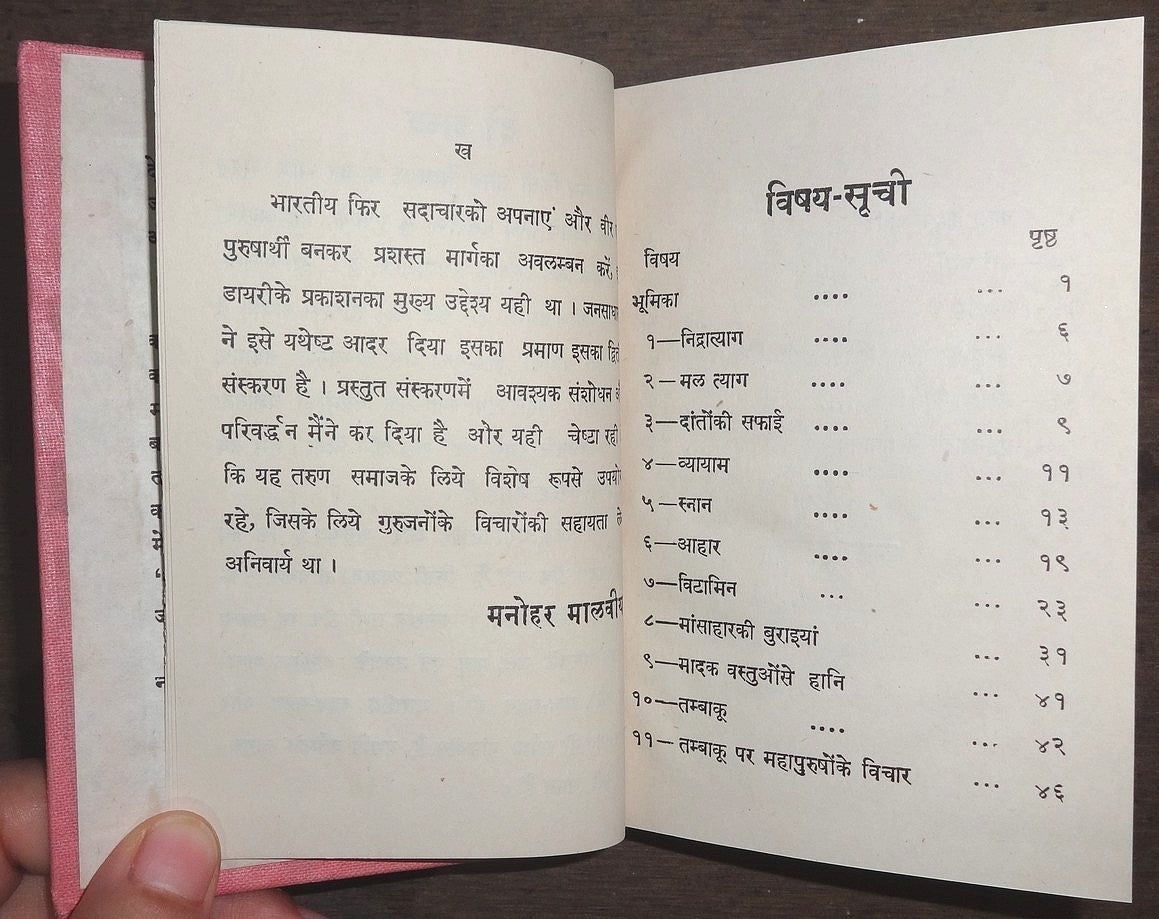 ख
भारतीय फिर सदाचारको अपनाएं और वीर
पुरुषार्थी बनकर प्रशस्त मार्गका अवलम्बन करें,
डायरीके प्रकाशनका मुख्य उद्देश्य यही था ।
ने इसे यथेष्ट आदर दिया इसका प्रमाण इसका
संस्करण है । प्रस्तुत संस्करणमें आवश्यक संशोधन
परिवर्द्धन मैंने कर दिया है और यही चेष्टा रही
कि यह तरुण समाजके लिये विशेष रूपसे
रहे, जिसके लिये गुरुजनोंके विचारोंकी सहायता
अनिवार्य था ।
मनोहर मालवीय
विषय-सूची
विषय पृष्ठ
भूमिका .... ... १
१—निद्रात्याग .... ... ६
२—मल त्याग .... ... ७
३—दांतोंकी सफाई .... ... ९
४—व्यायाम .... ... ११
५—स्नान .... ... १३
६—आहार .... ... १९
७—विटामिन ... ... २३
८—मांसाहारकी बुराइयां ... ३१
९—मादक वस्तुओंसे हानि ... ४१
१०—तम्बाकू .... ... ४२
११—तम्बाकू पर महापुरुषोंके विचार ... ४६